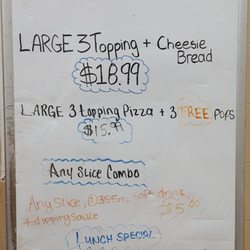 LARGE 3 Topping + Cheesie
Bread
$18.99
LARGE 3 topping Pizza + 3 FREE Pops
$15.99
Any Slice Combo
Any Slice, (1) 355mL soft drink
+ dipping sauce
LUNCH SPECIAL